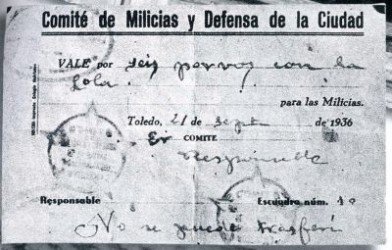 Comité de Milicias y Defensa de la Ciudad
VALE por seis porvos con la
Lola.
para las Milicias.
Toledo, 21 de Sepbre de 1936
Er COMITE
Responsable
Responsable Escuadra núm. 10
No se puede trasferí